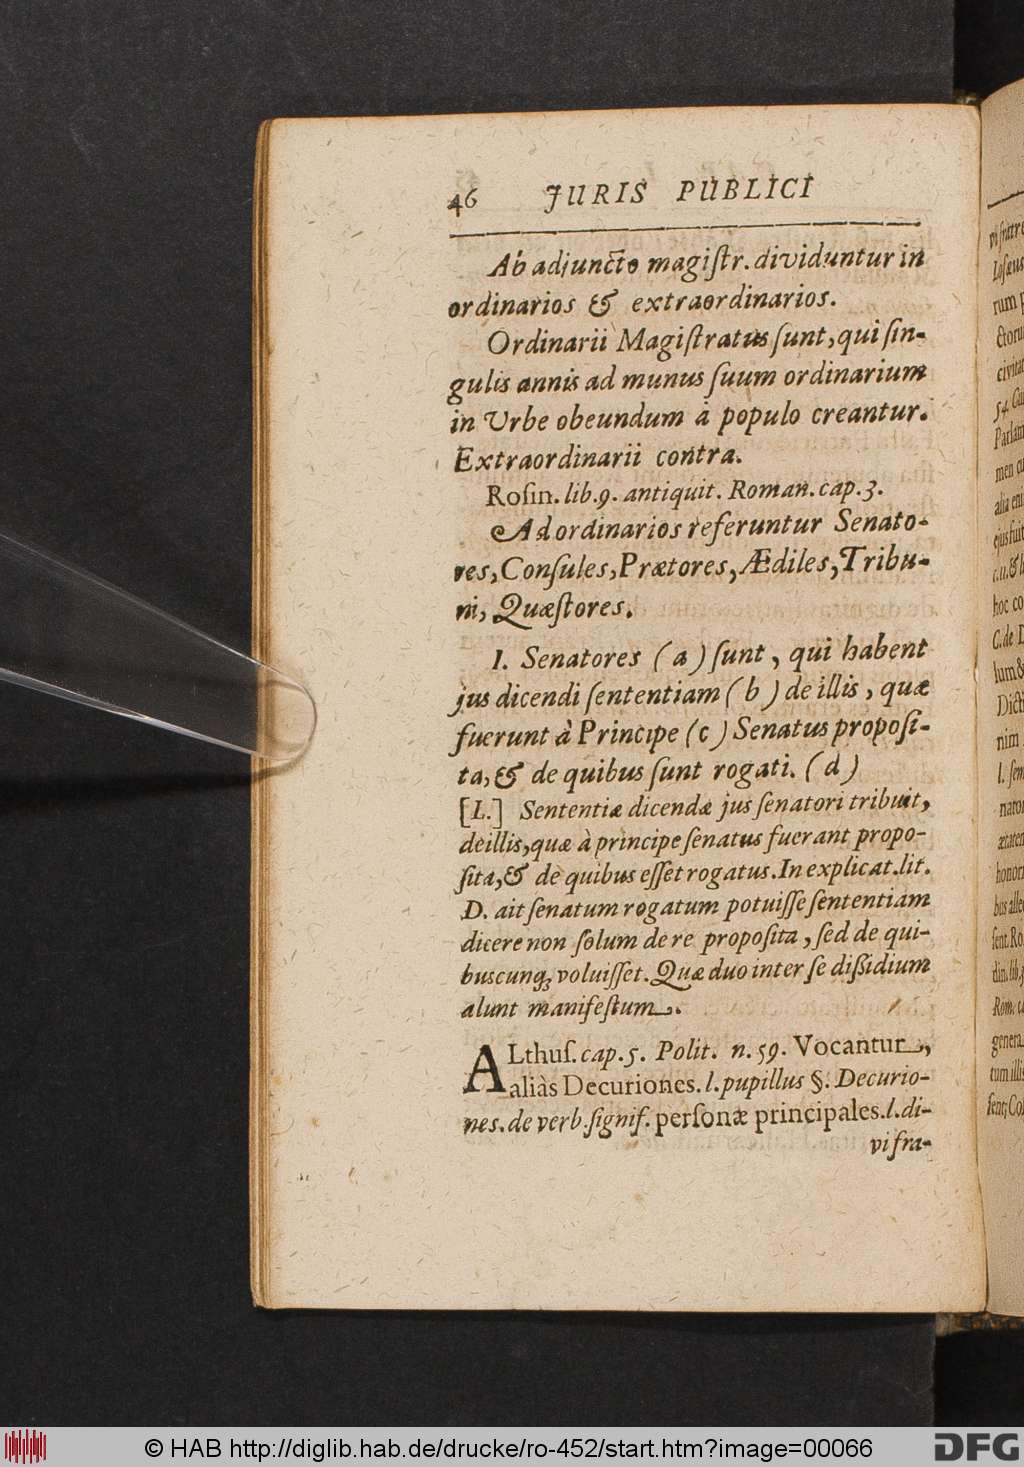 46 JURIS PUBLICI
Ab adjuncto magiſtr. dividuntur in
ordinarios & extraordinarios.
Ordinarii Magiſtratus ſunt, qui ſin-
gulis annis ad munus ſuum ordinarium
in Urbe obeundum à populo creantur.
Extraordinarii contra.
Roſin. lib. 9. antiquit. Roman. cap. 3.
Ad ordinarios referuntur Senato-
res, Conſules, Prætores, Ædiles, Tribu-
ni, Quæſtores.
I. Senatores (a) ſunt, qui habent
jus dicendi ſententiam (b) de illis, quæ
fuerunt à Principe (c) Senatus propoſi-
ta, & de quibus ſunt rogati. (d)
[L.] Sententiæ dicendæ jus ſenatori tribuit,
de illis, quæ à principe ſenatus fuerant propo-
ſita, & de quibus eſſet rogatus. In explicat. lit.
D. ait ſenatum rogatum potuiſſe ſententiam
dicere non ſolum de re propoſita, ſed de qui-
buscunq; voluiſſet. Quæ duo inter ſe diſſidium
alunt manifeſtum.
ALthuſ. cap. 5. Polit. n. 59. Vocantur,
aliàs Decuriones. l. pupillus §. Decurio-
nes. de verb. ſignif. perſonæ principales. l. di-
vi fra-
vi fratre
rum p
ctoru
civitat
54.
Parlam
men cu
alia eni
ejus fuit
c. 11. &
hoc co
C. de D
lum &
Dict
nim
l. ſem
nator
ætatem
honor
bus alle
ſent. Ro
din. lib.
Rom. c
genera
tum illis
ſent; Co
© HAB http://diglib.hab.de/drucke/ro-452/start.htm?image=00066
DFG